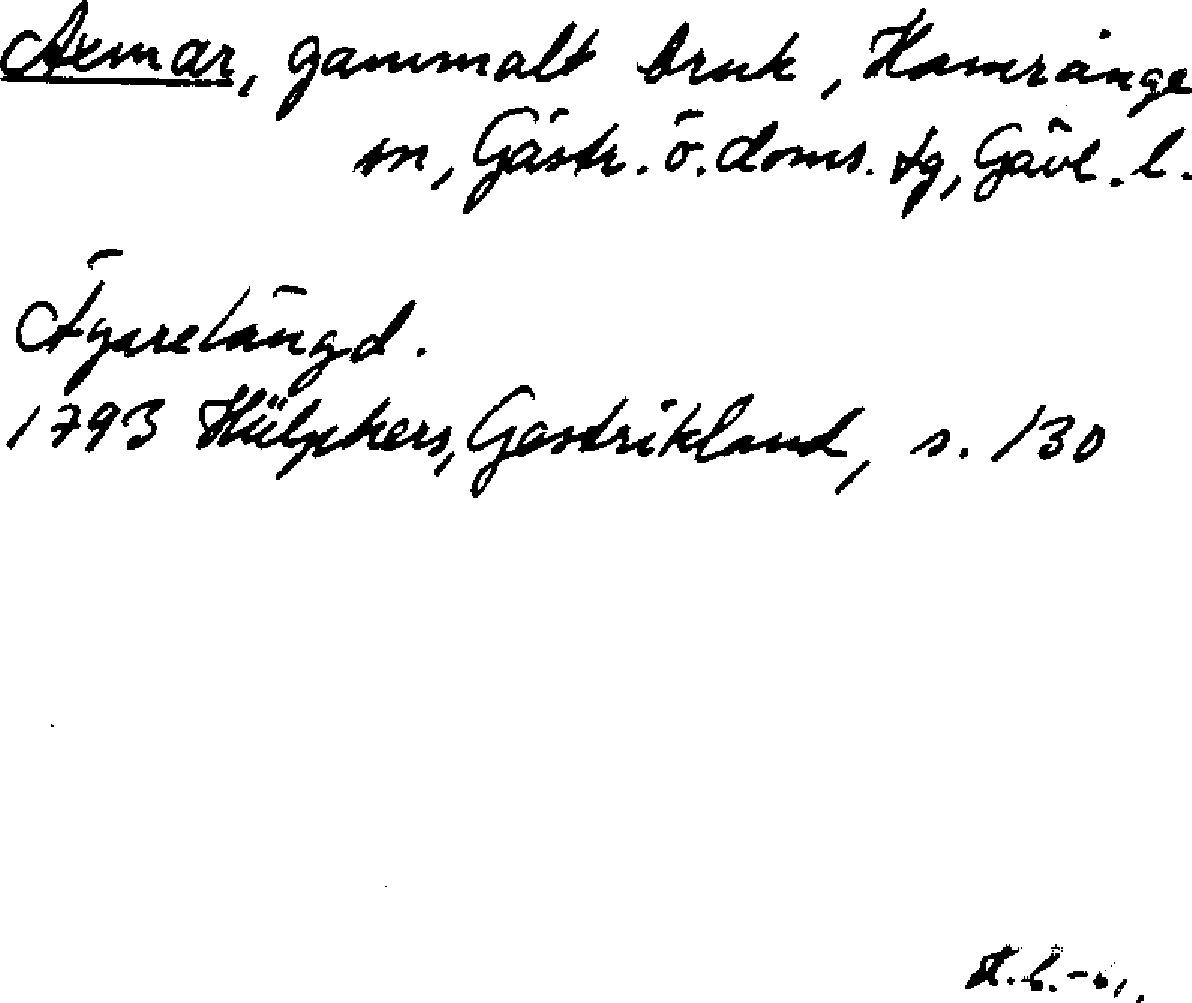 Axmar, gammalt bruk, Hamrånge
sn, Gästr. ö. doms. tg, Gävl. l.
Ägarelängd.
1793 Hülphers, Gestrikland, s. 130